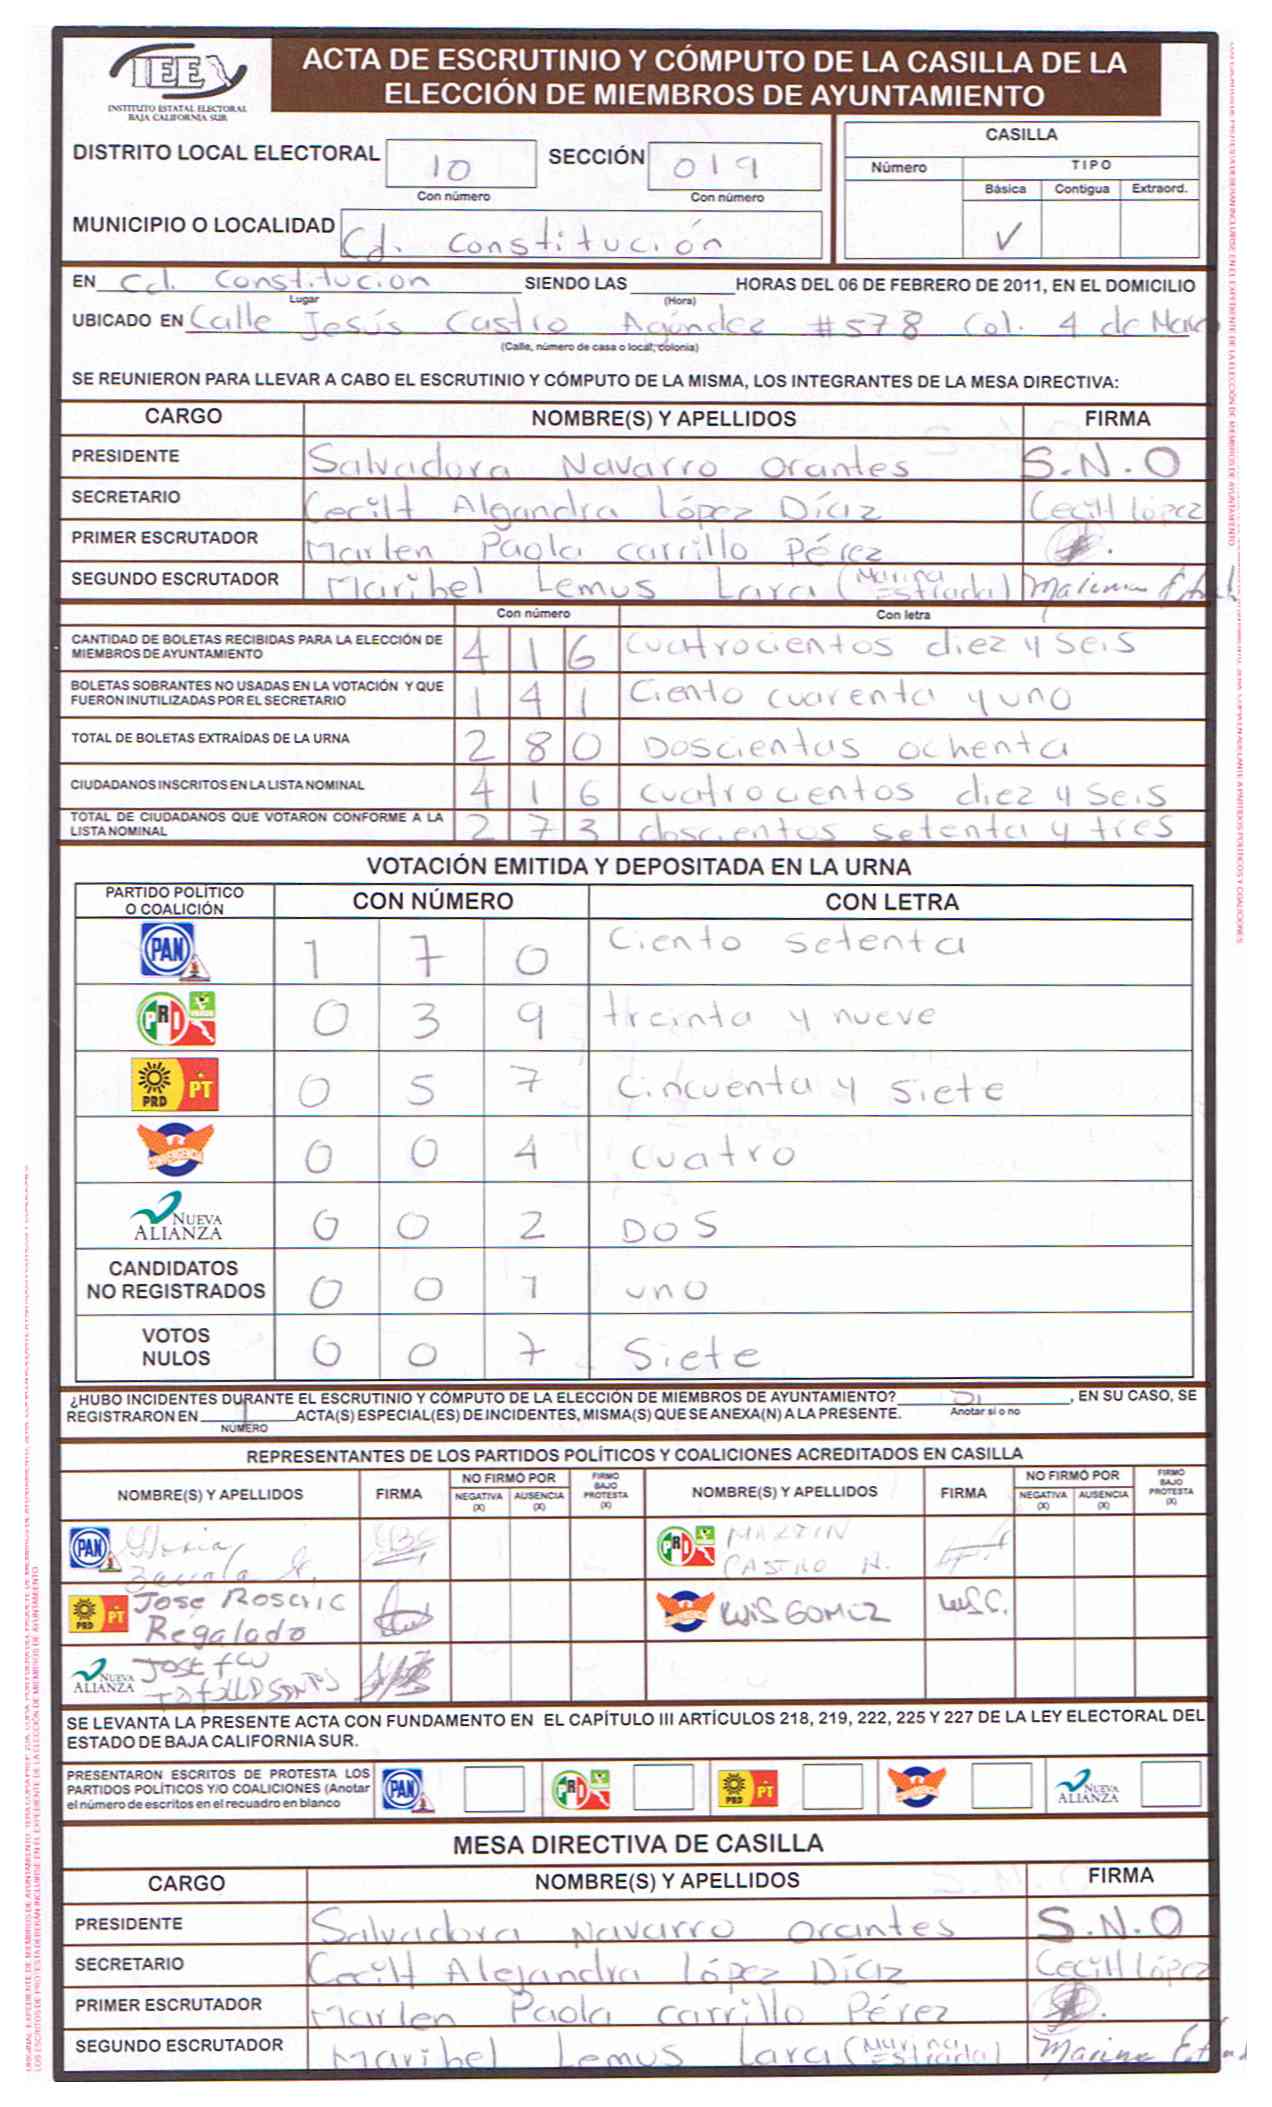 IEE
INSTITUTO ESTATAL ELECTORAL
BAJA CALIFORNIA SUR
ACTA DE ESCRUTINIO Y CÓMPUTO DE LA CASILLA DE LA
ELECCIÓN DE MIEMBROS DE AYUNTAMIENTO
DISTRITO LOCAL ELECTORAL 10 SECCIÓN 019
Con número Con número
MUNICIPIO O LOCALIDAD Cd. Constitución
CASILLA
Número TIPO
Básica Contigua Extraord.
✓
EN Cd. Constitucion SIENDO LAS HORAS DEL 06 DE FEBRERO DE 2011, EN EL DOMICILIO
Lugar (Hora)
UBICADO EN Calle Jesús Castro Agúndez #578 Col. 4 de Marzo
(Calle, número de casa o local, colonia)
SE REUNIERON PARA LLEVAR A CABO EL ESCRUTINIO Y CÓMPUTO DE LA MISMA, LOS INTEGRANTES DE LA MESA DIRECTIVA:
CARGO NOMBRE(S) Y APELLIDOS FIRMA
PRESIDENTE Salvadora Navarro Orantes S.N.O
SECRETARIO Cecilt Algandra López Díaz Cecilt López
PRIMER ESCRUTADOR Marlen Paola Carrillo Pérez
SEGUNDO ESCRUTADOR Maribel Lemus Lara (Marina Estrada)
Con número Con letra
CANTIDAD DE BOLETAS RECIBIDAS PARA LA ELECCIÓN DE
MIEMBROS DE AYUNTAMIENTO 416 Cuatrocientos diez y seis
BOLETAS SOBRANTES NO USADAS EN LA VOTACIÓN Y QUE
FUERON INUTILIZADAS POR EL SECRETARIO 141 Ciento cuarenta y uno
TOTAL DE BOLETAS EXTRAÍDAS DE LA URNA 280 Doscientas ochenta
CIUDADANOS INSCRITOS EN LA LISTA NOMINAL 416 cuatrocientos diez y seis
TOTAL DE CIUDADANOS QUE VOTARON CONFORME A LA
LISTA NOMINAL 273 doscientos setenta y tres
VOTACIÓN EMITIDA Y DEPOSITADA EN LA URNA
PARTIDO POLÍTICO
O COALICIÓN CON NÚMERO CON LETRA
PAN 1 7 0 Ciento setenta
PRI 0 3 9 treinta y nueve
PRD PT 0 5 7 Cincuenta y siete
CONVERGENCIA 0 0 4 cuatro
NUEVA ALIANZA 0 0 2 DOS
CANDIDATOS
NO REGISTRADOS 0 0 1 uno
VOTOS
NULOS 0 0 7 Siete
¿HUBO INCIDENTES DURANTE EL ESCRUTINIO Y CÓMPUTO DE LA ELECCIÓN DE MIEMBROS DE AYUNTAMIENTO? Si , EN SU CASO, SE
REGISTRARON EN 1 ACTA(S) ESPECIAL(ES) DE INCIDENTES, MISMA(S) QUE SE ANEXA(N) A LA PRESENTE. Anotar si o no
NÚMERO
REPRESENTANTES DE LOS PARTIDOS POLÍTICOS Y COALICIONES ACREDITADOS EN CASILLA
NOMBRE(S) Y APELLIDOS FIRMA NO FIRMÓ POR NEGATIVA (X) AUSENCIA (X) FIRMO BAJO PROTESTA (X) NOMBRE(S) Y APELLIDOS FIRMA NO FIRMÓ POR NEGATIVA (X) AUSENCIA (X) FIRMO BAJO PROTESTA (X)
PAN PRI MARTIN
CASTRO
PRD PT Jose
Regalado LUIS GOMEZ
NUEVA ALIANZA JOSE
SE LEVANTA LA PRESENTE ACTA CON FUNDAMENTO EN EL CAPÍTULO III ARTÍCULOS 218, 219, 222, 225 Y 227 DE LA LEY ELECTORAL DEL
ESTADO DE BAJA CALIFORNIA SUR.
PRESENTARON ESCRITOS DE PROTESTA LOS
PARTIDOS POLÍTICOS Y/O COALICIONES (Anotar
el número de escritos en el recuadro en blanco
PAN PRI PRD PT NUEVA ALIANZA
MESA DIRECTIVA DE CASILLA
CARGO NOMBRE(S) Y APELLIDOS FIRMA
PRESIDENTE Salvadora Navarro Orantes S.N.O
SECRETARIO Cecilt Alejandra López Díaz Cecilt López
PRIMER ESCRUTADOR Marlen Paola Carrillo Pérez
SEGUNDO ESCRUTADOR Maribel Lemus Lara (Marina Estrada)